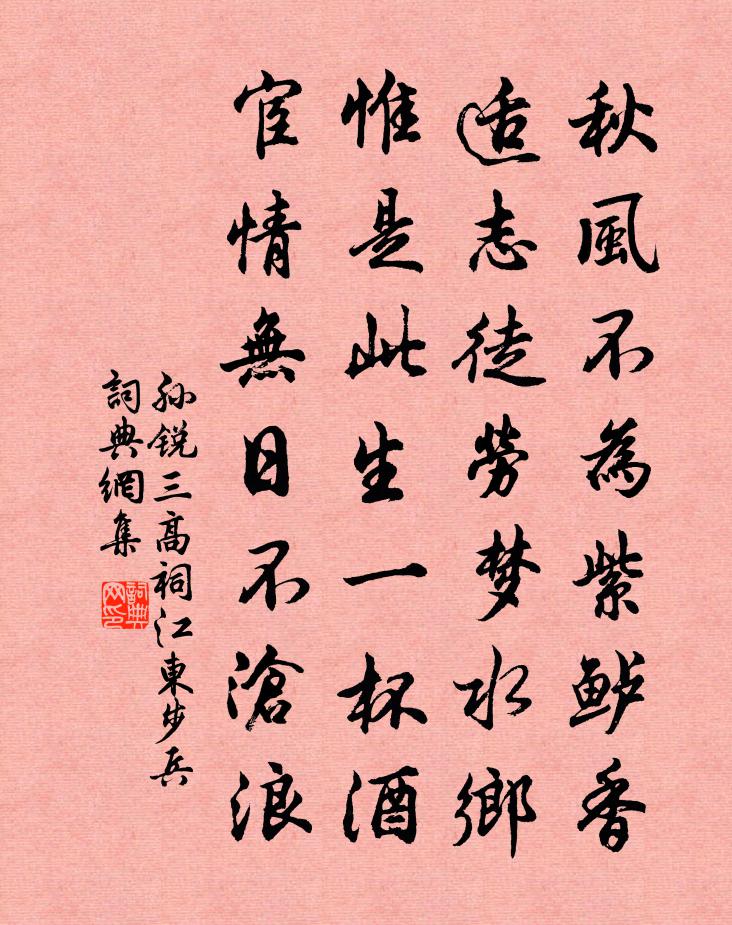 秋風不為紫鲈香
适志徒勞梦水鄉
惟是此生一杯酒
宦情無日不滄浪
孙锐三高祠江東步兵
詞典網集
詞典网印